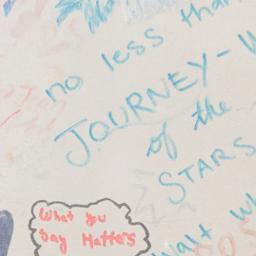 no less than
JOURNEY-W
of the
STARS
Walt Wh
What You
Say Matters